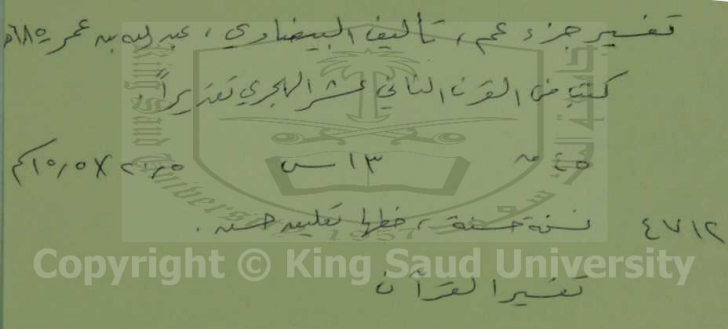 تفسير جزء عم، تأليف البيضاوي، عبد الله بن عمر - ٦٨٥هـ
كتب في القرن الثاني عشر الهجري تقديراً.
٤٥ ق ١٣ س ٢٠٫٥ × ١٥٫٥ سم
٤٧١٢ نسخة حسنة، خطها تعليق حسن.
Copyright © King Saud University
تفسير القرآن